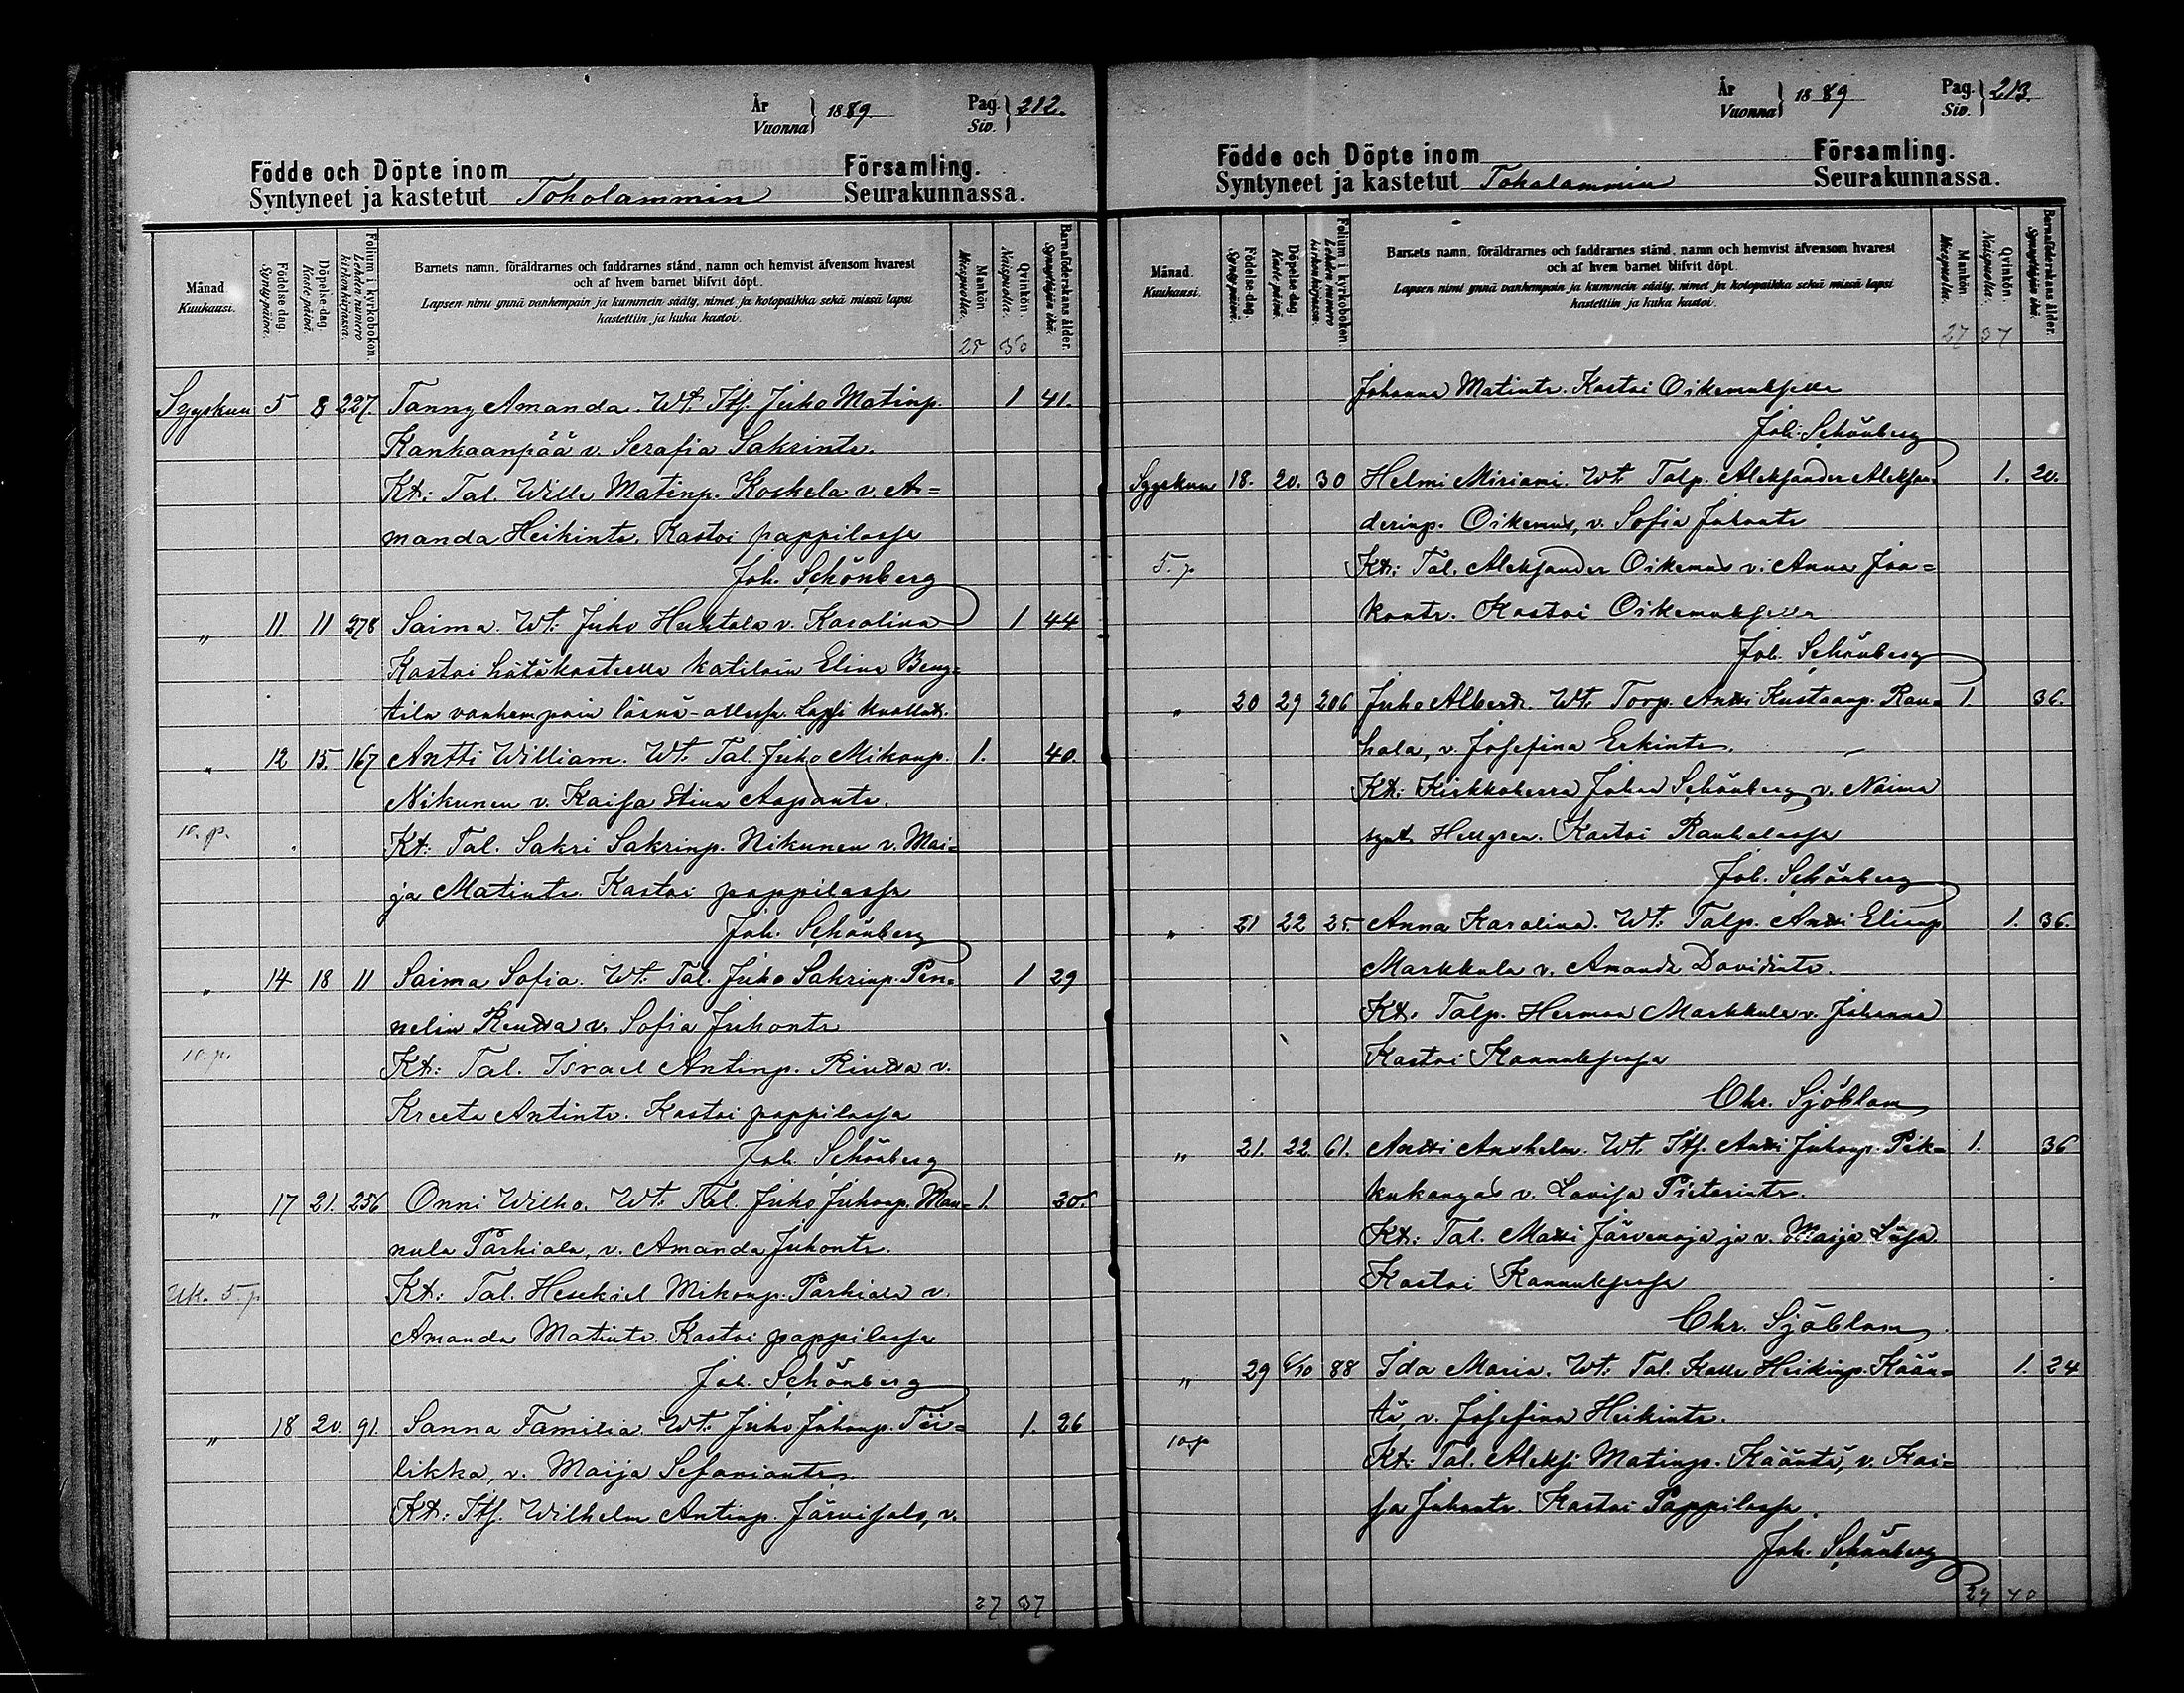 År
Vuonna } 1889 Pag. Siv. } 212.
Födde och Döpte inom Församling.
Syntyneet ja kastetut Toholammin Seurakunnassa.
Månad. Kuukausi.
Födelse-dag. Synty-päivä.
Döpelse-dag. Kaste-päivä.
Folium i kyrkoboken. Lehden numero kirkonkirjassa.
Barnets namn, föräldrarnes och faddrarnes stånd, namn och hemvist äfvensom hvarest
och af hvem barnet blifvit döpt.
Lapsen nimi ynnä vanhempain ja kummein sääty, nimet ja kotopaikka sekä missä lapsi
kastettiin ja kuka kastoi.
Mankön. Miespuolia.
Qvinkön. Naispuolia.
Barnaföderskans ålder. Synnyttäjän ikä.
25 33
Syyskuu 5 8 227. Fanny Amanda. Wt. Its. Juho Matinp. 1 41.
Kankaanpää v. Serafia Sakrintr.
Kt: Tal. Wille Matinp. Koskela v. A=
manda Heikintr. Kastoi pappilassa
Joh. Schönberg
" 11. 11 278 Saima. Wt: Juho Huhtala v. Karolina 1 44
Kastoi hätäkasteella kätilöin Elina Beng=
tila vanhempain läsnä-ollessa. Lapsi kuollut.
" 12 15. 167 Antti William. Wt. Tal. Juho Mikonp. 1. 40.
Nikunen v. Kaisa Stina Aapontr.
10. p. Kt: Tal. Sakri Sakrinp. Nikunen v. Mai=
ja Matintr. Kastoi pappilassa
Joh. Schönberg
" 14 18 11 Saima Sofia. Wt: Tal. Juho Sakrinp. Pen= 1 29
nelin Rentta v. Sofia Juhontr
10. p. Kt: Tal. Israel Antinp. Rintta v.
Kreeta Antintr. Kastoi pappilassa
Joh. Schönberg
" 17 21. 256 Onni Wilho. Wt. Tal. Juho Juhonp. Man= 1. 20.
nula Parhiala, v. Amanda Juhontr.
Uk. 5. p Kt: Tal. Hesekiel Mikonp. Parhiala v.
Amanda Matintr. Kastoi pappilassa
Joh. Schönberg
" 18 20. 91. Sanna Familia. Wt: Juho Juhonp. Tii= 1. 26
likka, v. Maija Sefaniantr.
Kt: Its. Wilhelm Antinp. Järvisalo, v.
27 37
År
Vuonna } 1889 Pag. Siv. } 213.
Födde och Döpte inom Församling.
Syntyneet ja kastetut Toholammin Seurakunnassa.
Månad. Kuukausi.
Födelse-dag. Synty-päivä.
Döpelse-dag. Kaste-päivä.
Folium i kyrkoboken. Lehden numero kirkonkirjassa.
Barnets namn, föräldrarnes och faddrarnes stånd, namn och hemvist äfvensom hvarest
och af hvem barnet blifvit döpt.
Lapsen nimi ynnä vanhempain ja kummein sääty, nimet ja kotopaikka sekä missä lapsi
kastettiin ja kuka kastoi.
Mankön. Miespuolia.
Qvinkön. Naispuolia.
Barnaföderskans ålder. Synnyttäjän ikä.
27 37
Johanna Matintr. Kastoi Oikemuksella
Joh. Schönberg
Syyskuu 18. 20. 30 Helmi Miriami. Wt. Talp. Aleksander Aleksan= 1. 20.
derinp. Oikemus, v. Sofia Juhontr
5. p Kt: Tal. Aleksander Oikemus v. Anna Jaa=
kontr. Kastoi Oikemuksella
Joh. Schönberg
" 20 29 206 Juho Albert. Wt. Torp. Antti Kustaanp. Rau= 1. 36.
hala, v. Josefina Erkintr.
Kt: Kirkkoherra Johan Schönberg v. Naima
synt. Hellgren. Kastoi Rauhalassa
Joh. Schönberg
" 21 22 25. Anna Karolina. Wt: Talp. Antti Elianp 1. 36.
Markkula v. Amanda Davidintr.
Kt. Talp. Herman Markkula v. Johanna
Kastoi Kannuksessa
Chr. Sjöblom
" 21. 22. 61. Antti Anshelm. Wt. Its. Antti Juhonp. Pik= 1. 36
kukangas v. Lovisa Pietarintr.
Kt: Tal. Matti Järvenoja ja v. Maija Liisa.
Kastoi Kannuksessa
Chr. Sjöblom
" 29 6/10 88 Ida Maria. Wt: Tal. Kalle Heikinp. Kään= 1. 24
tä, v. Josefina Heikintr.
10. p Kt: Tal. Aleksi Matinp. Kääntä, v. Kai=
sa Juhontr. Kastoi Pappilassa.
Joh. Schönberg
29 40